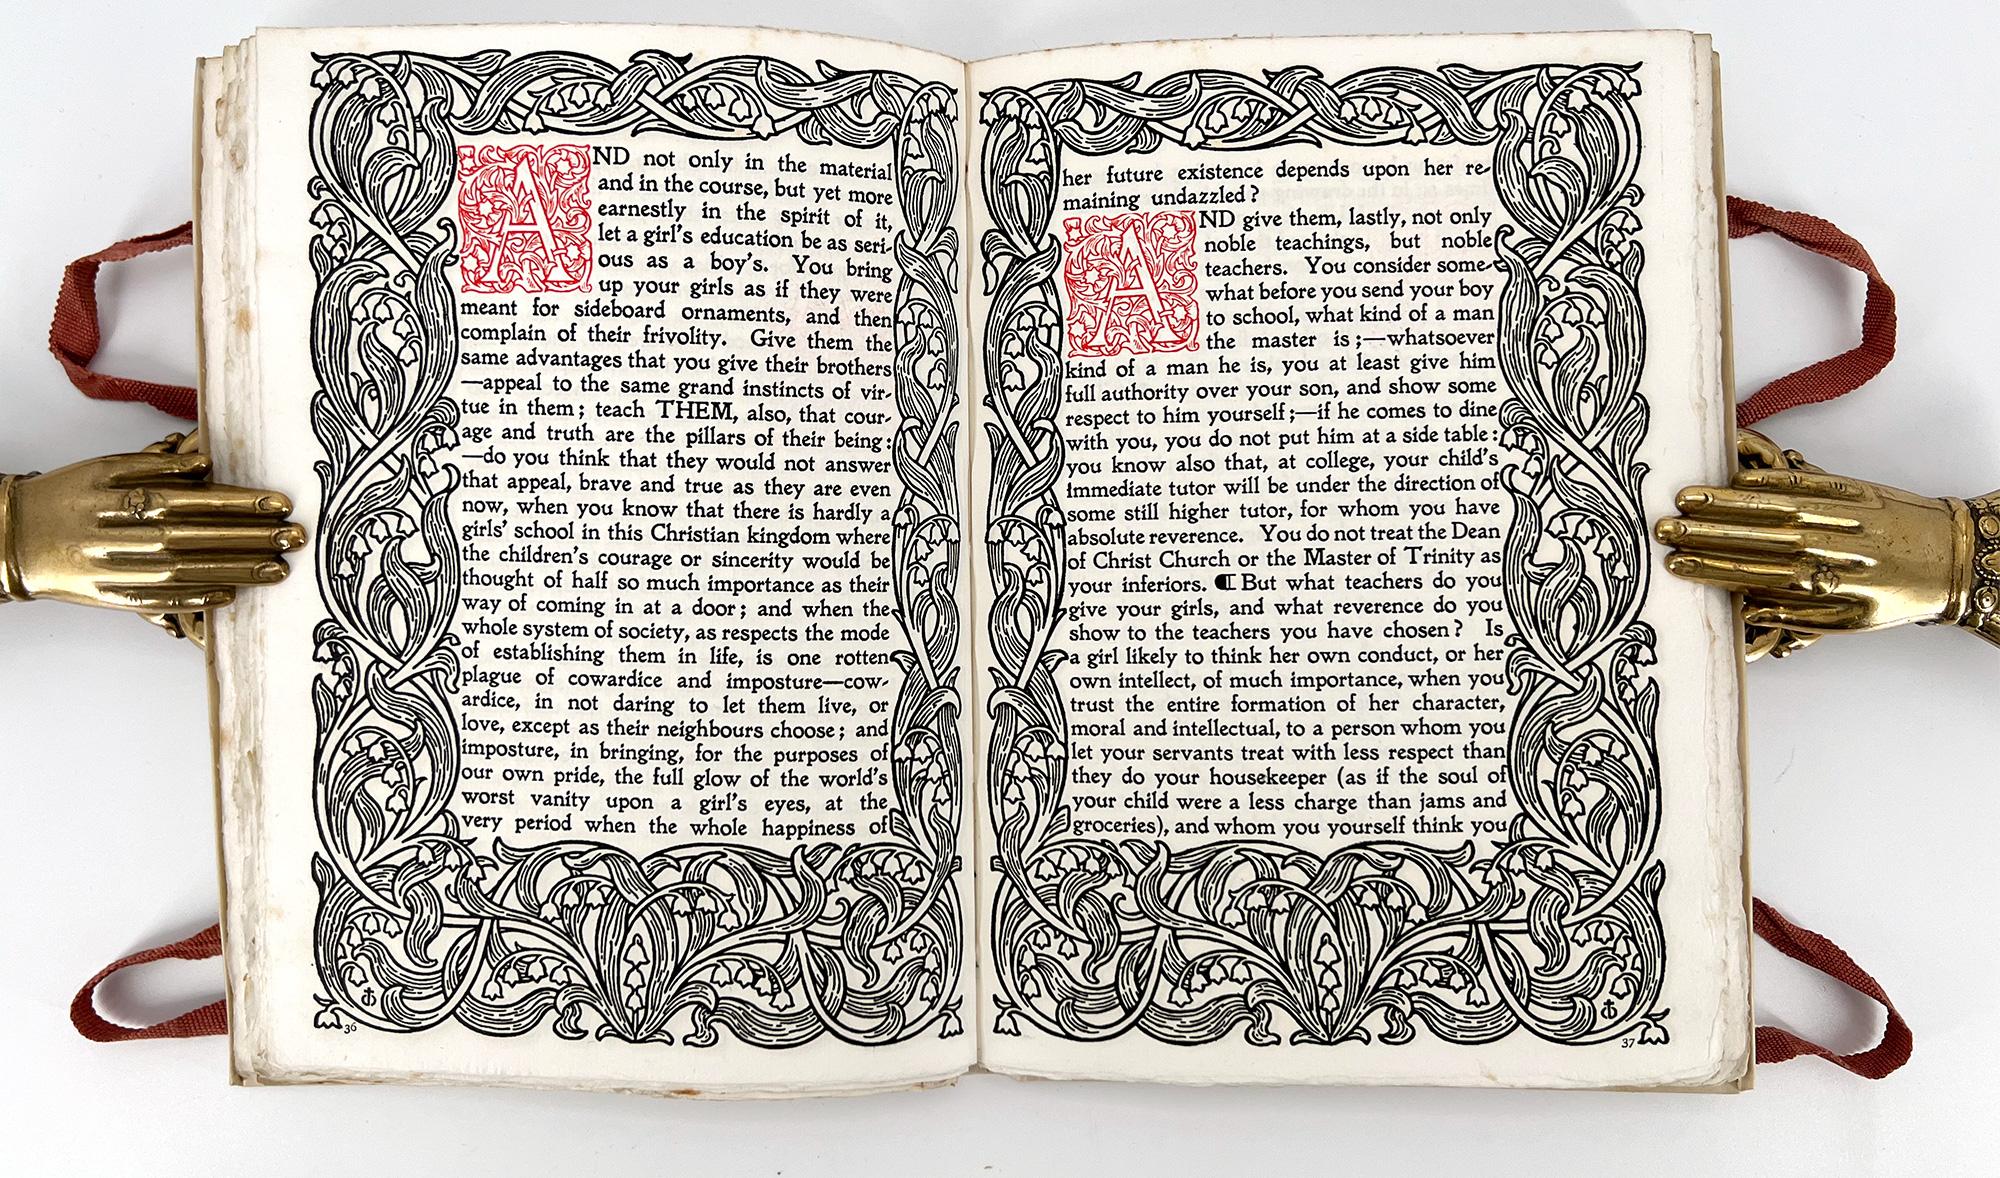 AND not only in the material
and in the course, but yet more
earnestly in the spirit of it,
let a girl's education be as seri-
ous as a boy's. You bring
up your girls as if they were
meant for sideboard ornaments, and then
complain of their frivolity. Give them the
same advantages that you give their brothers
—appeal to the same grand instincts of vir-
tue in them; teach THEM, also, that cour-
age and truth are the pillars of their being:
—do you think that they would not answer
that appeal, brave and true as they are even
now, when you know that there is hardly a
girls' school in this Christian kingdom where
the children's courage or sincerity would be
thought of half so much importance as their
way of coming in at a door; and when the
whole system of society, as respects the mode
of establishing them in life, is one rotten
plague of cowardice and imposture—cow-
ardice, in not daring to let them live, or
love, except as their neighbours choose; and
imposture, in bringing, for the purposes of
our own pride, the full glow of the world's
worst vanity upon a girl's eyes, at the
very period when the whole happiness of
36
her future existence depends upon her re-
maining undazzled?
AND give them, lastly, not only
noble teachings, but noble
teachers. You consider some-
what before you send your boy
to school, what kind of a man
the master is;—whatsoever
kind of a man he is, you at least give him
full authority over your son, and show some
respect to him yourself;—if he comes to dine
with you, you do not put him at a side table:
you know also that, at college, your child's
immediate tutor will be under the direction of
some still higher tutor, for whom you have
absolute reverence. You do not treat the Dean
of Christ Church or the Master of Trinity as
your inferiors. ¶ But what teachers do you
give your girls, and what reverence do you
show to the teachers you have chosen? Is
a girl likely to think her own conduct, or her
own intellect, of much importance, when you
trust the entire formation of her character,
moral and intellectual, to a person whom you
let your servants treat with less respect than
they do your housekeeper (as if the soul of
your child were a less charge than jams and
groceries), and whom you yourself think you
37